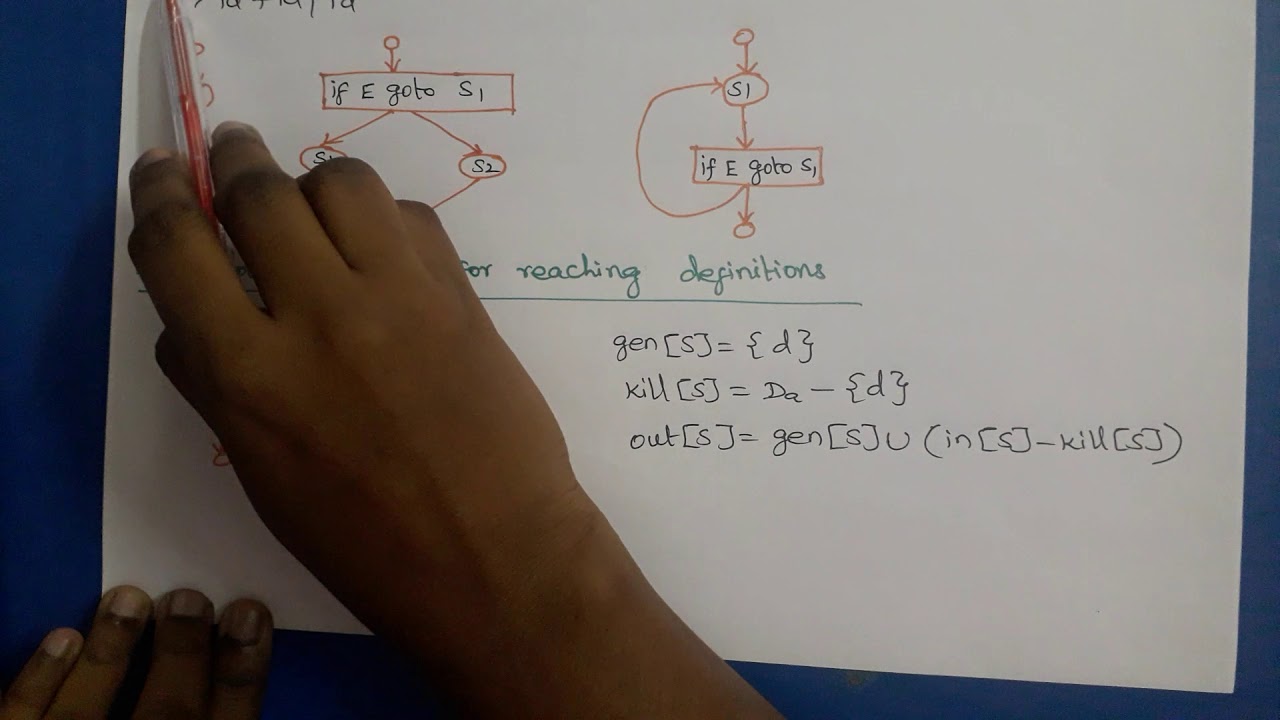 if E goto S1
S1
S2
S1
if E goto S1
for reaching definitions
gen[S] = {d}
kill[S] = Da - {d}
out[S] = gen[S] ∪ (in[S] - kill[S])